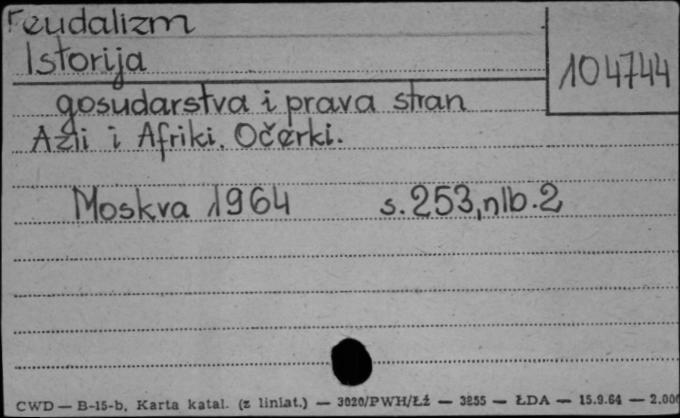 Feudalizm
Istorija
104744
gosudarstva i prava stran
Azii i Afriki. Očerki.
Moskva 1964 s.253,nlb.2
CWD — B-15-b, Karta katal. (z liniat.) — 3020/PWH/Łź — 3855 — ŁDA — 15.9.64 — 2.000